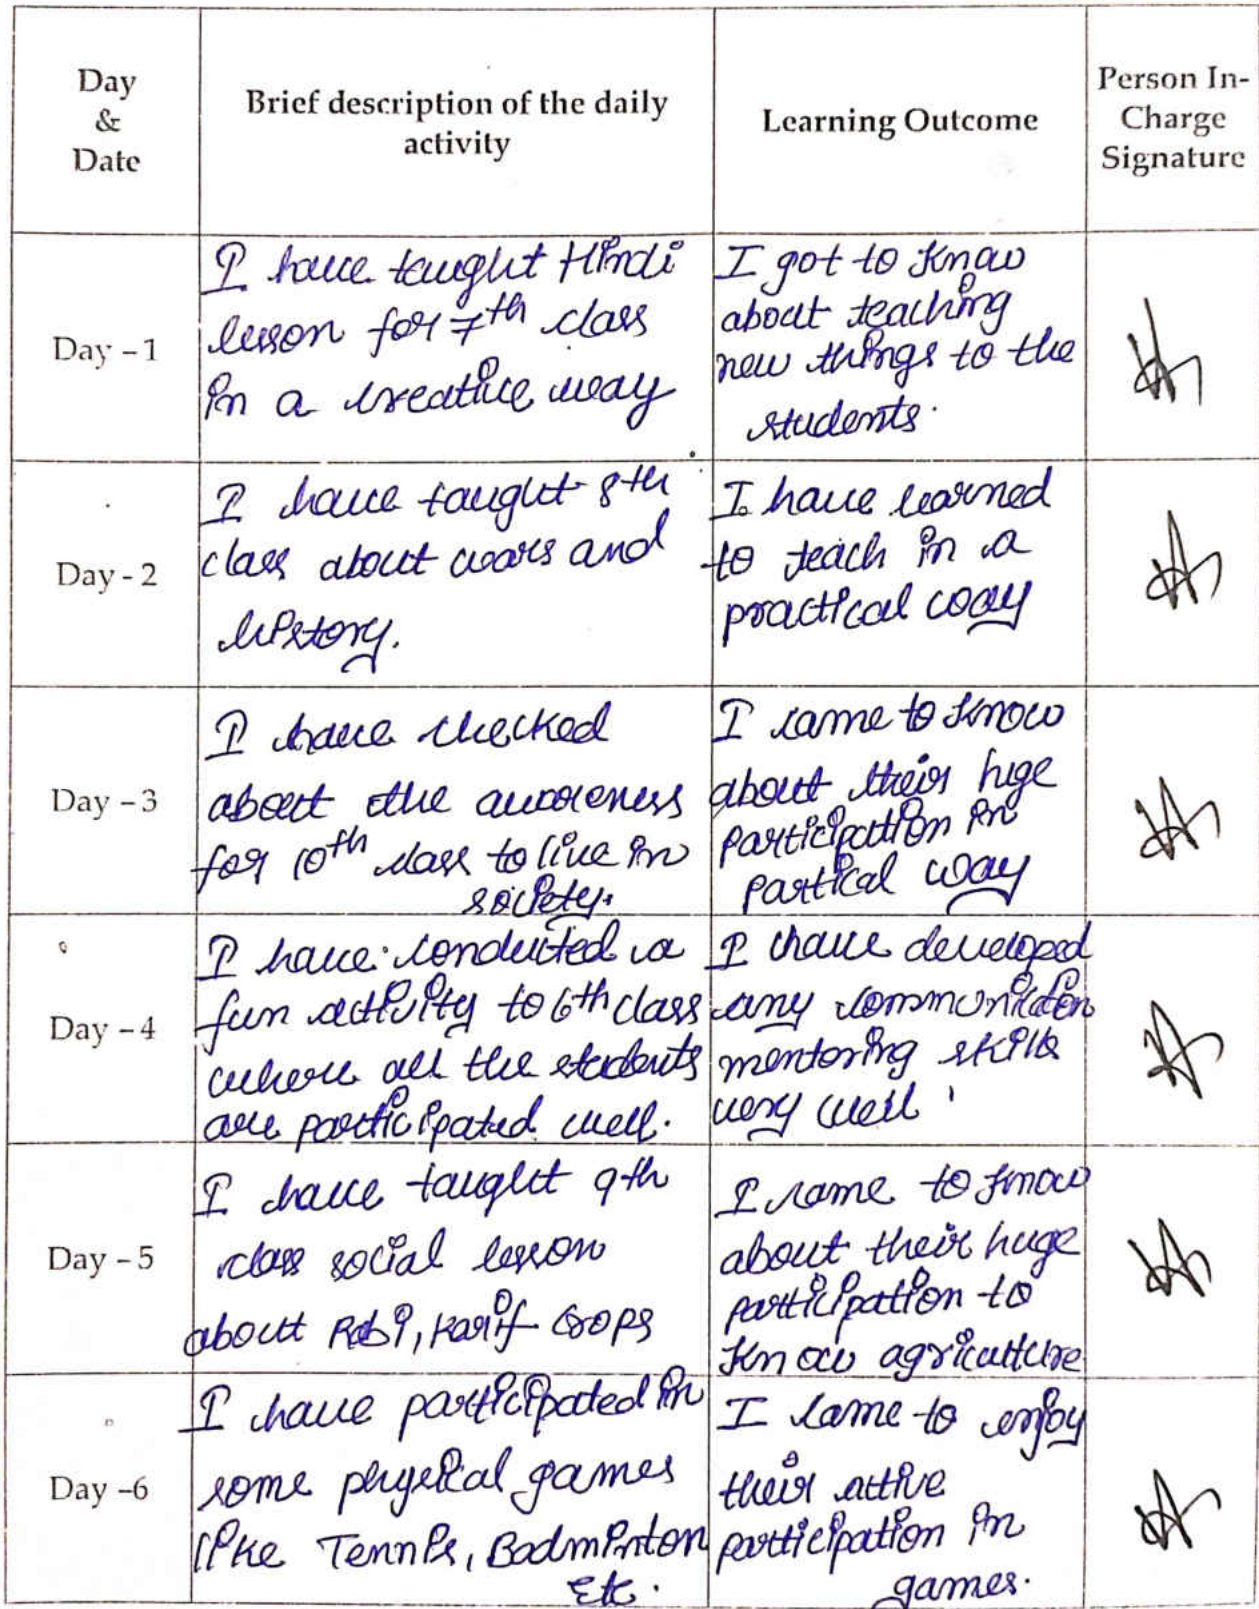 Day
&
Date
Brief description of the daily
activity
Learning Outcome
Person In-
Charge
Signature
Day - 1
I have taught Hindi
lesson for 7th class
in a creative way
I got to know
about teaching
new things to the
students.
Day - 2
I have taught 8th
class about wars and
history.
I have learned
to teach in a
practical way
Day - 3
I have checked
about the awareness
for 10th class to live in
society.
I came to know
about their huge
participation in
partical way
Day - 4
I have conducted a
fun activity to 6th class
where all the students
are participated well.
I have developed
any
mentoring skills
very well
Day - 5
I have taught 9th
class social lesson
about Rabi, Karif Crops
I came to know
about their huge
participation to
know agriculture
Day -6
I have participated in
some physical games
like Tennis, Badminton
Etc.
I came to enjoy
their attive
participation in
games.